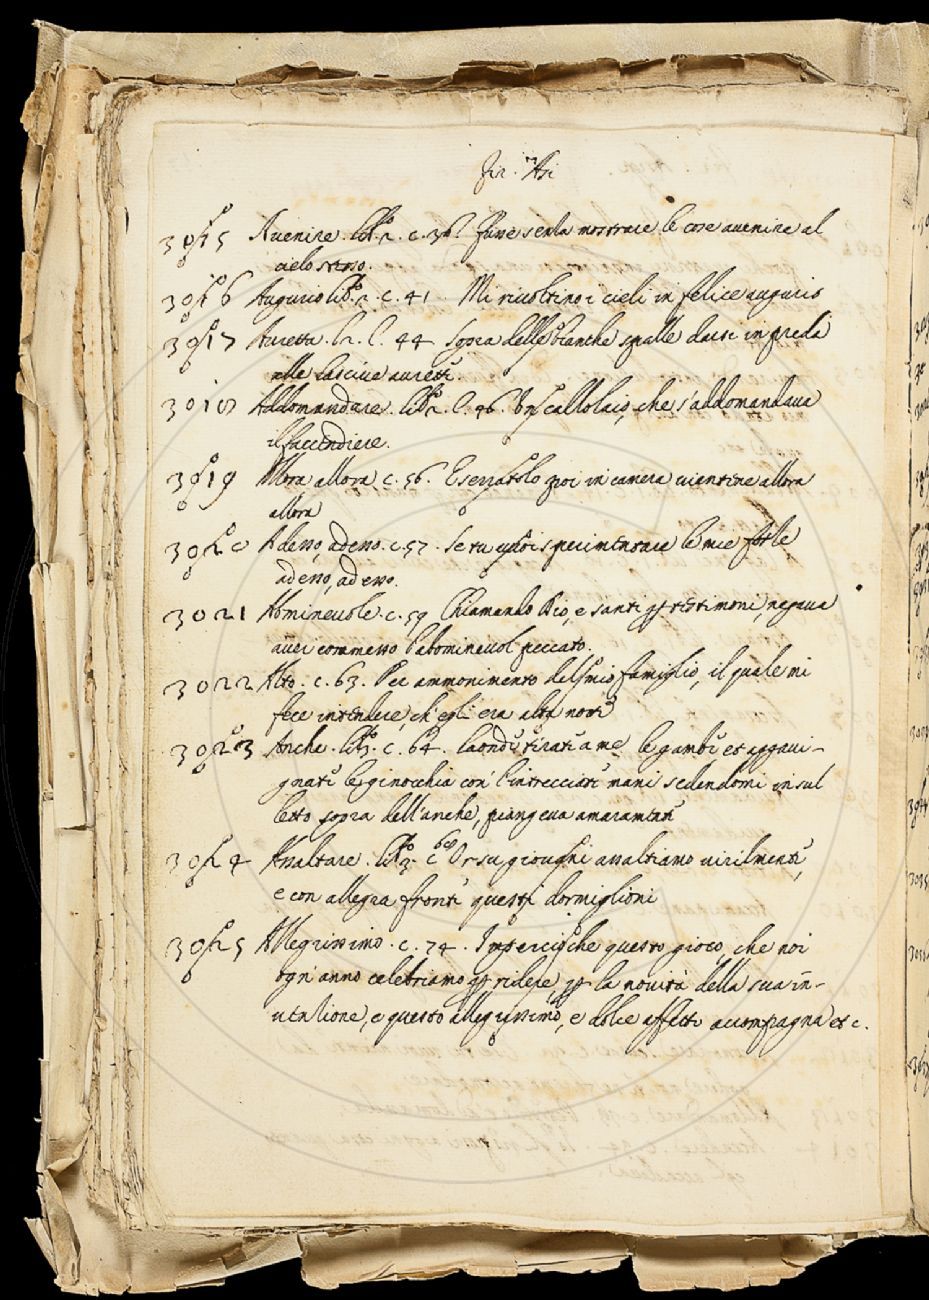 Fir. Asi
3015 Auenire. lib.o 2. c. 36. senza mostrare le cose auenire al
cielo stesso.
3016 Augurio lib.o 2. c. 41. Mi riuoltino i cieli in felice augurio
3017 Auretta. l. 2. c. 44 sopra delle bianche spalle darsi in preda
alle lasciue aurette.
3018 Addomandare. lib.o 2. c. 46. Vn callolaio, che s'addomandaua
il faccendiere.
3019 Allora allora c. 56. E serratolo poi in camera viensene allora
allora
3020 Adesso, adesso. c. 57. se tu vuoi sperimentare le mie forze
adesso, adesso.
3021 Abomineuole. c. 59 Chiamando Dio, e santi per testimoni, negaua
auer commesso l'abomineuol peccato.
3022 Alto. c. 63. Per ammonimento del mio famiglio, il quale mi
fece intendere, ch'egli era alta notte
3023 Anche. lib.o 3. c. 64. laonde tirate a me le gambe et aggaui-
gnate le ginocchia con l'intrecciate mani sedendomi in sul
letto sopra dell'anche, piangeua amaramente
3024 Assaltare. lib.o 3. c. 60 Orsu giouani assaltiamo uirilmente,
e con allegra fronte questi dormiglioni
3025 Allegrissimo. c. 74. Impercioche questo gioco, che noi
ogni anno celebriamo per ridere, per la nouità della sua in-
uenzione, e questo allegrissimo, e dolce affetto accompagna et c.